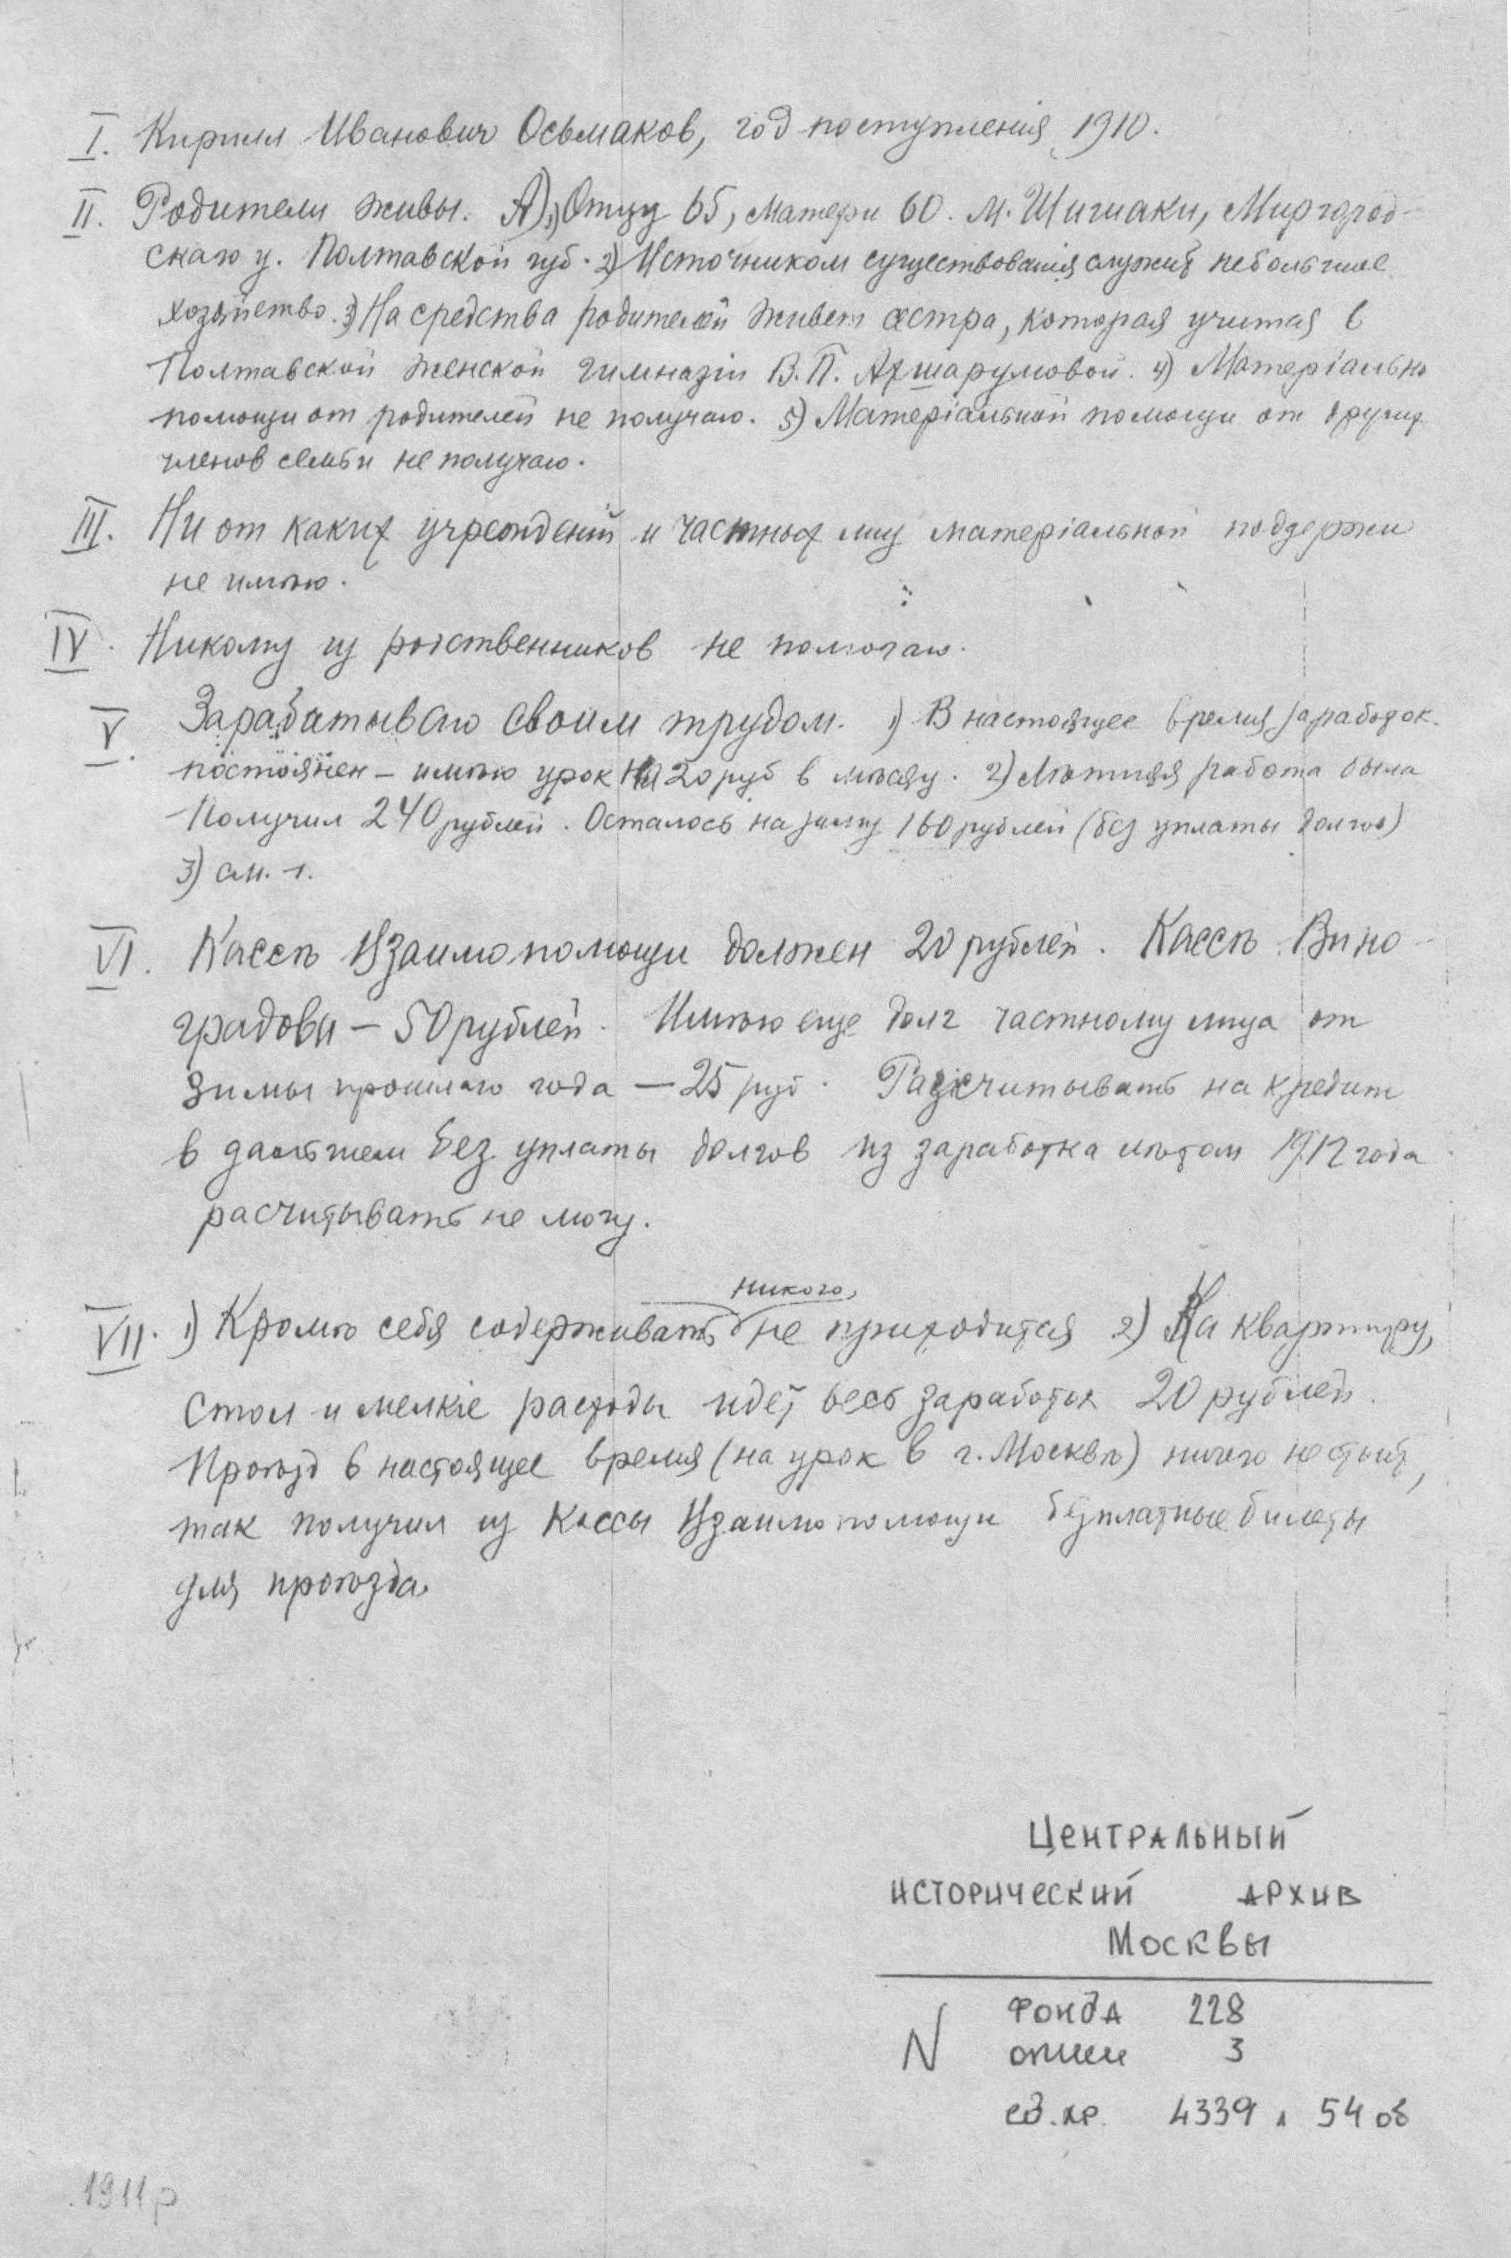 I. Кирилл Иванович Осьмаков, год поступленія 1910.
II. Родители живы. А) 1) Отцу 65, матери 60. М. Шишаки, Миргород-
скаго у. Полтавской губ. 2) Источником существованія служит небольшое
хозяйство. 3) На средства родителей живет сестра, которая учится в
Полтавской женской гимназіи В. П. Ахшарумовой. 4) Матеріально
помощи от родителей не получаю. 5) Матеріальной помощи от других
членов семьи не получаю.
III. Ни от каких учреждений и частных лиц матеріальной поддержи
не имѣю.
IV. Никому из родственников не помогаю.
V. Зарабатываю своим трудом. 1) В настоящее время заработок
постоянен – имѣю урок на 20 руб в мѣсяц. 2) Лѣтняя работа была
Получил 240 рублей. Осталось на зиму 160 рублей (без уплаты долгов)
3) см. 1.
VI. Кассѣ Взаимопомощи должен 20 рублей. Кассѣ Вино-
градова – 50 рублей. Имѣю еще долг частному лица от
зимы прошлаго года – 25 руб. Разсчитывать на кредит
в дальнем без уплаты долгов из заработка лѣтом 1912 года
расчитывать не могу.
никого
VII. 1) Кромѣ себя содерживать не приходится 2) На квартиру,
стол и мелкіе расходы идет весь заработок 20 рублей.
Проѣзд в настоящее время (на урок в г. Москвѣ) ничего не стоит,
так получил из Кассы Взаимопомощи безплатные билеты
для проѣзда.
Центральный
исторический архив
Москвы
N фонда 228
описи 3
ед. хр. 4339 л 54 об
1911 р